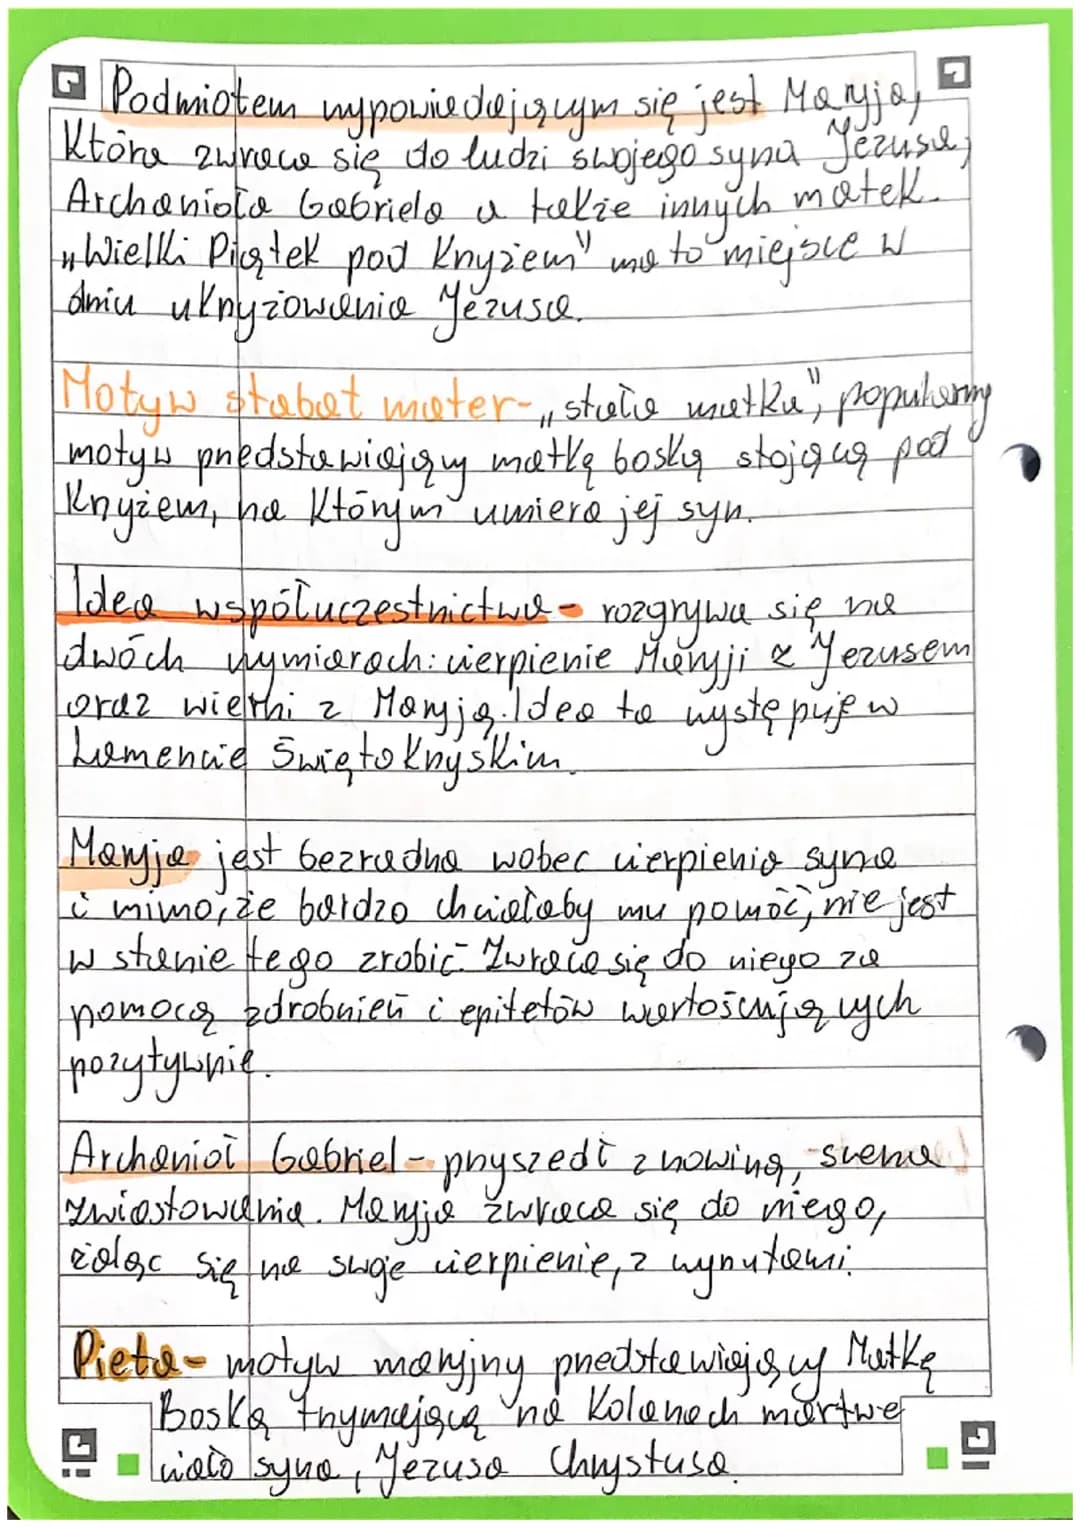 Podmiotem wypowiadającym się jest Maryja,
Która zwraca się do ludzi swojego syna Jezusa,
Archanioła Gabriela a także innych matek.
„Wielki Piątek pod Krzyżem" ma to miejsce w
dniu ukrzyżowania Jezusa.
Motyw stabat mater - „stała matka", popularny
motyw przedstawiający matkę boską stojącą pod
Krzyżem, na Którym umiera jej syn.
Idea współuczestnictwa - rozgrywa się na
dwóch wymiarach: cierpienie Maryji z Jezusem
oraz wierni z Maryją. Idea ta występuje w
Lamencie Świętokrzyskim.
Maryja jest bezradna wobec cierpienia syna
i mimo, że bardzo chciałaby mu pomóc, nie jest
w stanie tego zrobić. Zwraca się do niego za
pomocą zdrobnień i epitetów wartościujących
pozytywnie.
Archanioł Gabriel - przyszedł z nowiną, - scena
zwiastowania. Maryja zwraca się do niego,
żaląc się na swoje cierpienie, z wyrzutami.
Pieta - motyw maryjny przedstawiający Matkę
Boską trzymającą na Kolanach martwe
ciało syna, Jezusa Chrystusa.